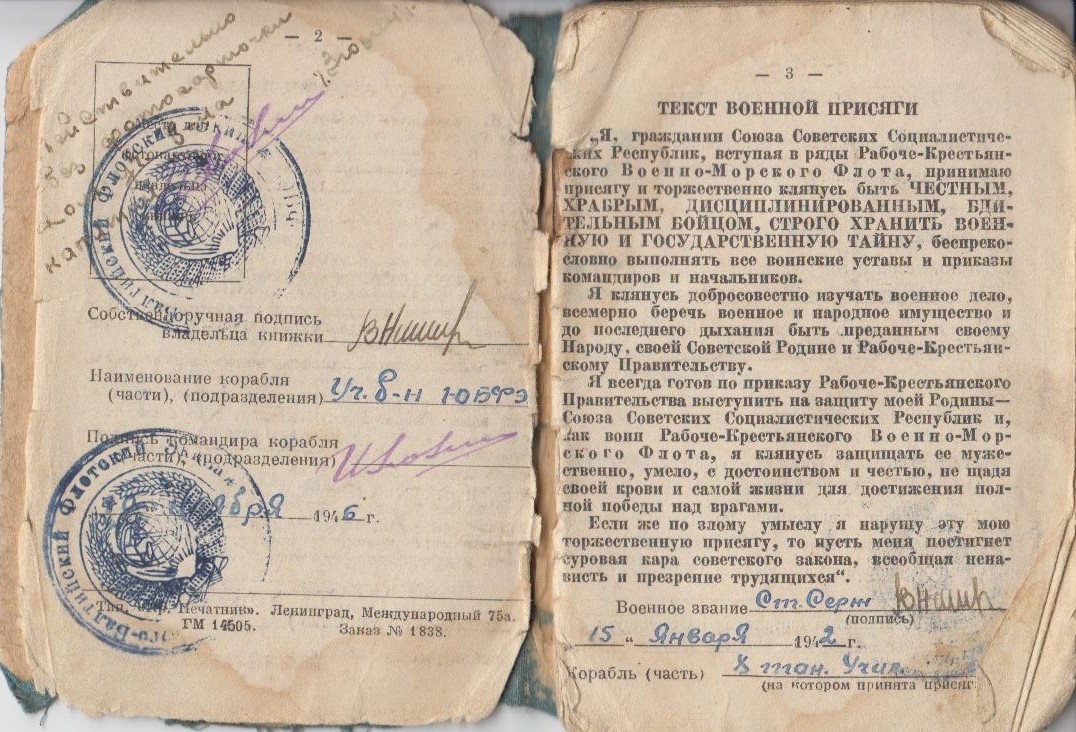 — 2 —
Действительно
без фотокарточки
Собственноручная подпись
владельца книжки
Наименование корабля
(части), (подразделения) Уч. б-н ЮБФЭ
Подпись командира корабля
(части), (подразделения)
1946 г.
Печатник». Ленинград, Международный 75а.
ГМ 14505. Заказ № 1838.
— 3 —
ТЕКСТ ВОЕННОЙ ПРИСЯГИ
„Я, гражданин Союза Советских Социалистиче-
ских Республик, вступая в ряды Рабоче-Крестьян-
ского Военно-Морского Флота, принимаю
присягу и торжественно клянусь быть ЧЕСТНЫМ,
ХРАБРЫМ, ДИСЦИПЛИНИРОВАННЫМ, БДИ-
ТЕЛЬНЫМ БОЙЦОМ, СТРОГО ХРАНИТЬ ВОЕН-
НУЮ И ГОСУДАРСТВЕННУЮ ТАЙНУ, беспреко-
словно выполнять все воинские уставы и приказы
командиров и начальников.
Я клянусь добросовестно изучать военное дело,
всемерно беречь военное и народное имущество и
до последнего дыхания быть преданным своему
Народу, своей Советской Родине и Рабоче-Крестьян-
скому Правительству.
Я всегда готов по приказу Рабоче-Крестьянского
Правительства выступить на защиту моей Родины—
Союза Советских Социалистических Республик и,
как воин Рабоче-Крестьянского Военно-Мор-
ского Флота, я клянусь защищать ее муже-
ственно, умело, с достоинством и честью, не щадя
своей крови и самой жизни для достижения пол-
ной победы над врагами.
Если же по злому умыслу я нарушу эту мою
торжественную присягу, то пусть меня постигнет
суровая кара советского закона, всеобщая нена-
висть и презрение трудящихся“.
Военное звание Ст. Серж
(подпись)
15 „ Января 1942 г.
Корабль (часть) тан. Учил
(на котором принята присяг